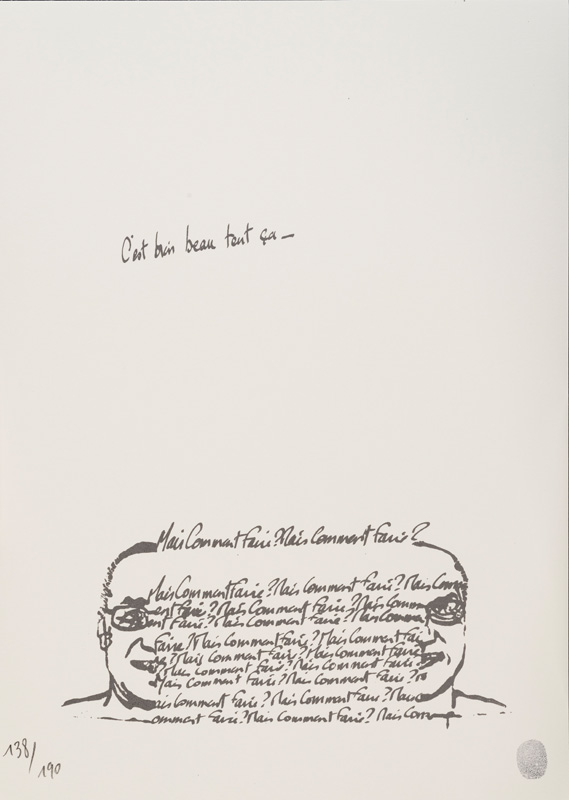 C'est bien beau tout ça —
Mais Comment Faire? Mais Comment Faire?
Mais Comment Faire? Mais Comment Faire? Mais Comm
ent Faire? Mais Comment Faire? Mais Comm
ent Faire? Mais Comment Faire? Mais Comme
Faire? Mais Comment Faire? Mais Comment Fai
Mais Comment Faire? Mais Comment Faire
Mais Comment Faire? Mais Comment Faire
Mais Comment Faire? Mais Comment Faire?
ais Comment Faire? Mais Comment Faire? Mais
omment Faire? Mais Comment Faire? Mais Comm
138/
190